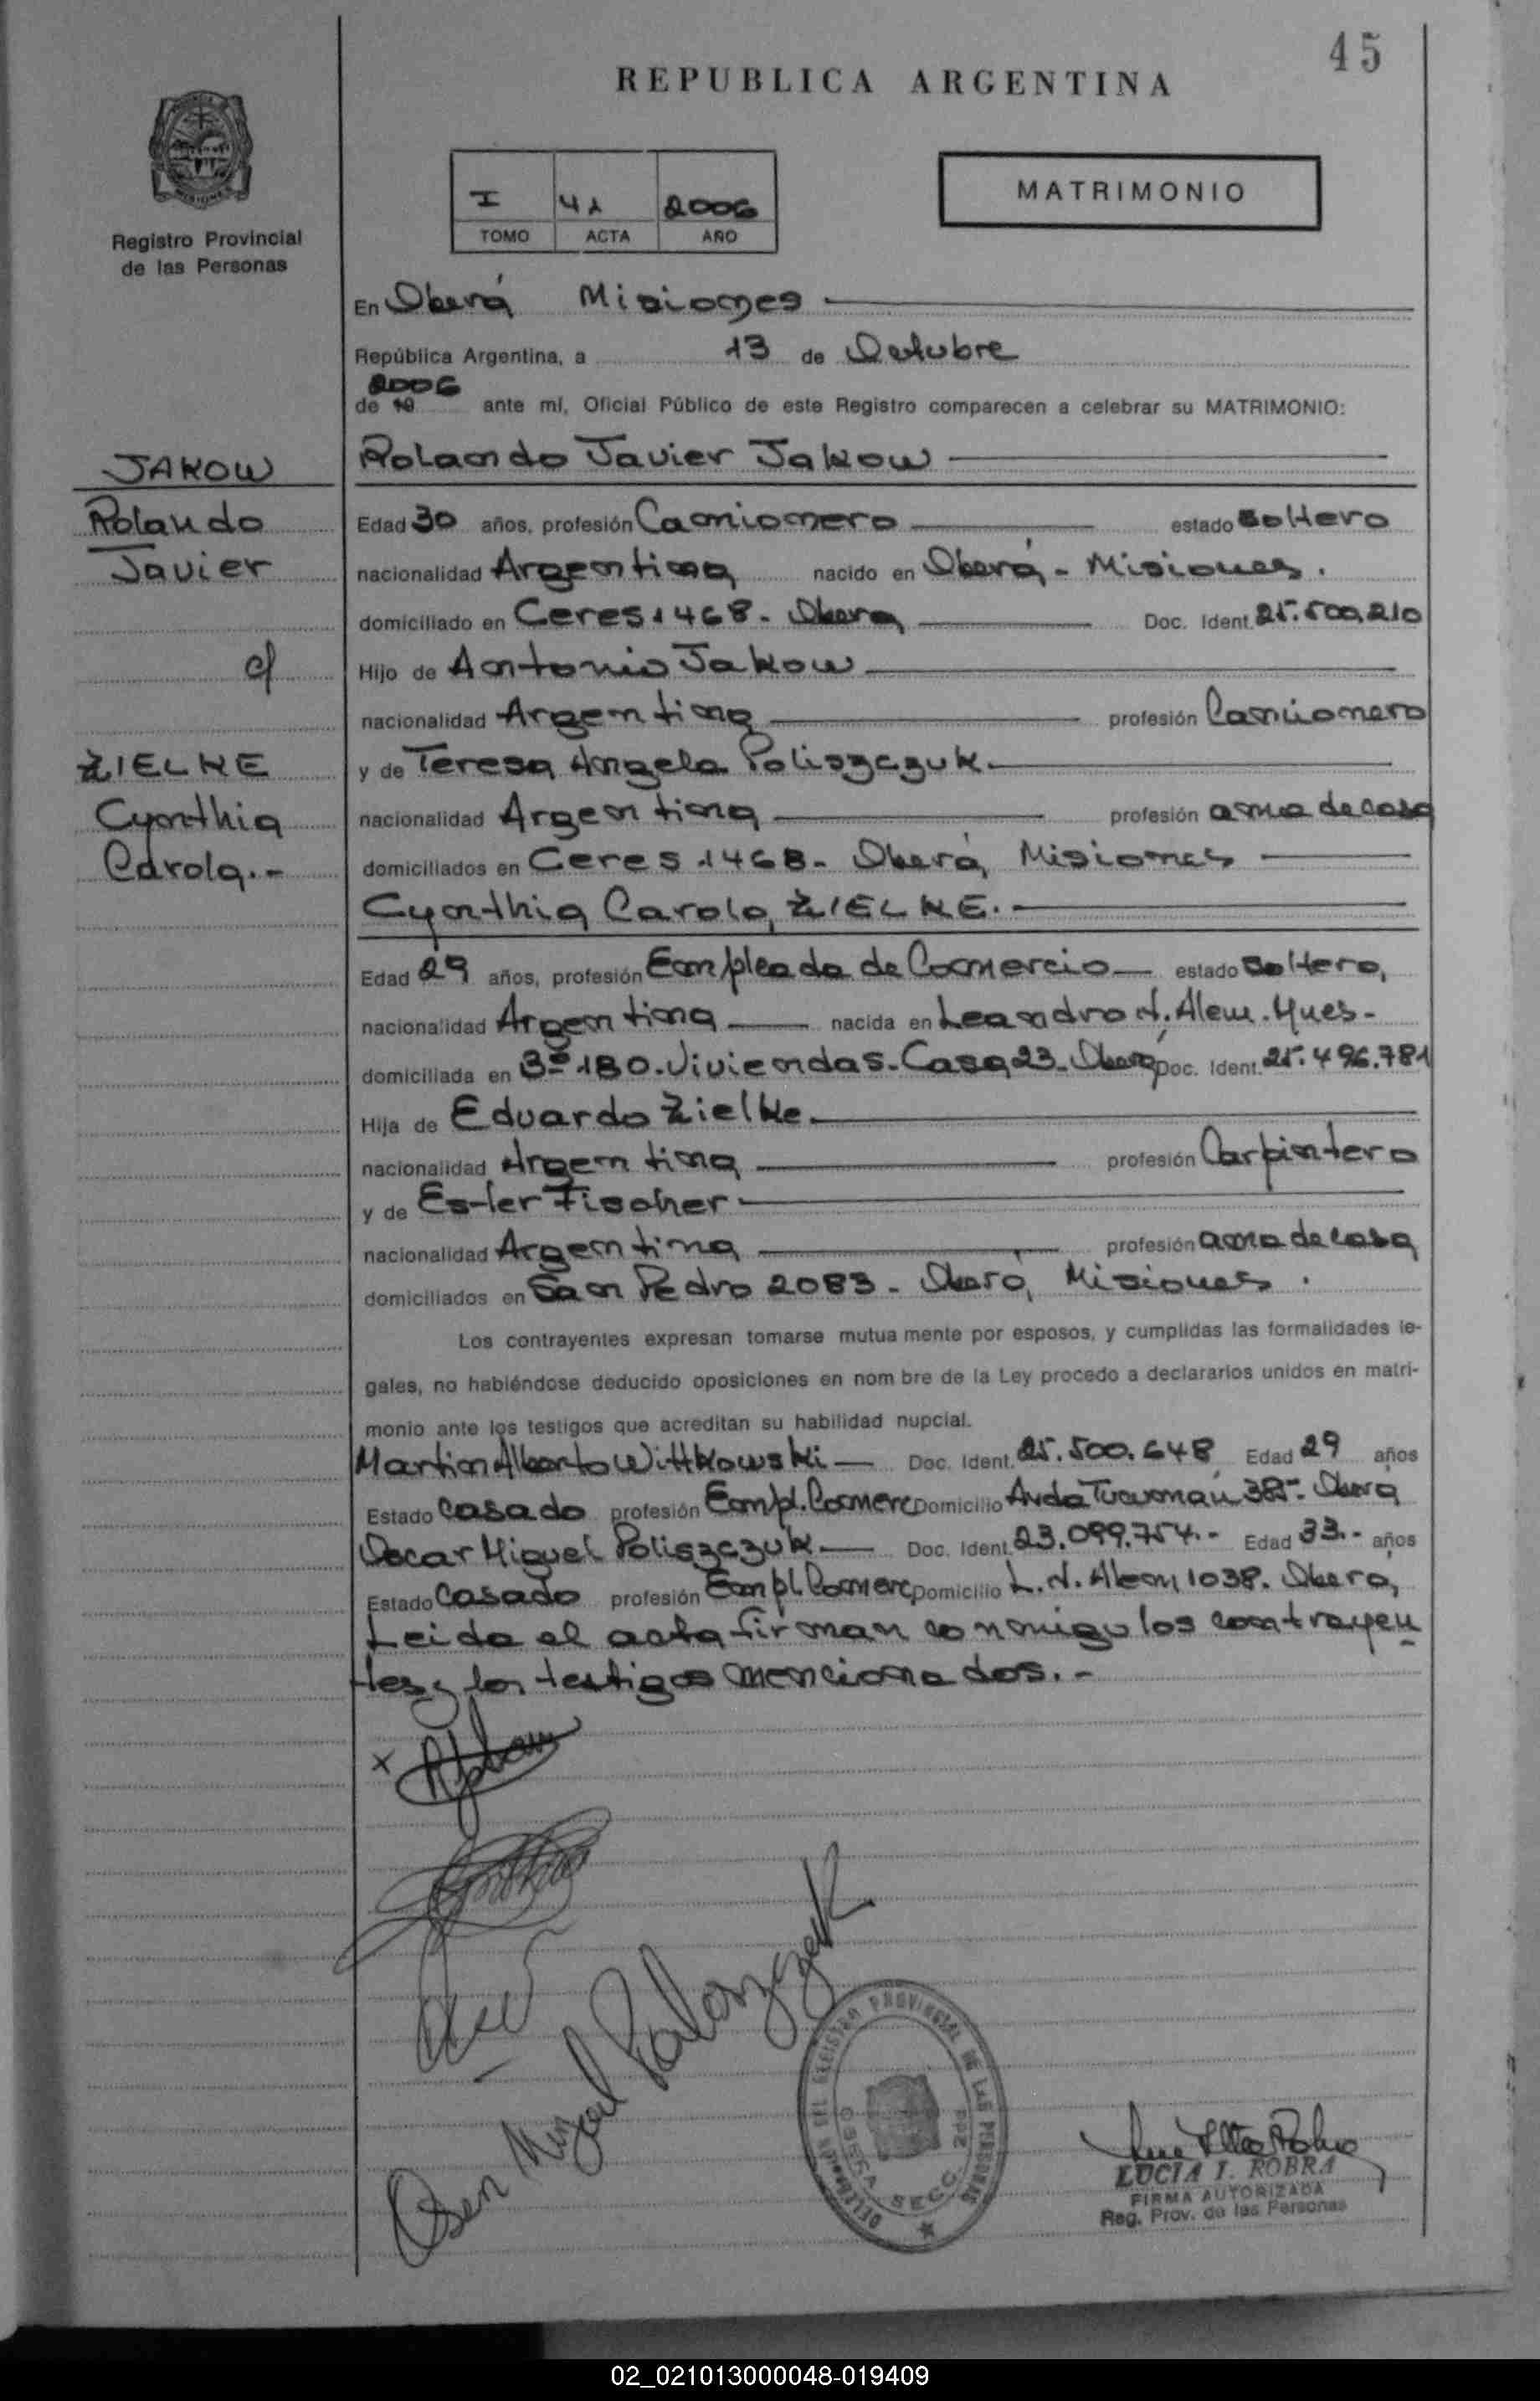 45
REPUBLICA ARGENTINA
I 41 2006
TOMO ACTA AÑO
MATRIMONIO
Registro Provincial
de las Personas
En Oberá Misiones
República Argentina, a 13 de Octubre
2006
de 19 ante mí, Oficial Público de este Registro comparecen a celebrar su MATRIMONIO:
JAKOW
Rolando
Javier
c/
ZIELKE
Cynthia
Carola.-
Rolando Javier Jakow
Edad 30 años, profesión Camionero estado soltero
nacionalidad Argentina nacido en Oberá - Misiones.
domiciliado en Ceres 1468. Oberá Doc. Ident. 25.500.210
Hijo de Antonio Jakow
nacionalidad Argentina profesión Camionero
y de Teresa Angela Poliszczuk
nacionalidad Argentina profesión ama de casa
domiciliados en Ceres 1468. Oberá, Misiones
Cynthia Carola ZIELKE.
Edad 29 años, profesión Empleada de Comercio estado soltera
nacionalidad Argentina nacida en Leandro N. Alem. Mnes-
domiciliada en 3º 180. Viviendas. Casa 23. Oberá Doc. Ident. 25.496.781
Hija de Eduardo Zielke
nacionalidad Argentina profesión Carpintero
y de Ester Fischer
nacionalidad Argentina profesión ama de casa
domiciliados en San Pedro 2083 - Oberá, Misiones.
Los contrayentes expresan tomarse mutua mente por esposos, y cumplidas las formalidades le-
gales, no habiéndose deducido oposiciones en nom bre de la Ley procedo a declararlos unidos en matri-
monio ante los testigos que acreditan su habilidad nupcial.
Martin Alberto Wittkowski Doc. Ident. 25.500.648 Edad 29 años
Estado Casado profesión Empl. Comerc Domicilio Avda Tucumán 385- Oberá
Oscar Miguel Poliszczuk Doc. Ident. 23.099.754.- Edad 33.- años
Estado Casado profesión Empl. Comerc Domicilio L. N. Alem 1038. Oberá
Leida el acta firman conmigo los contrayen
tes y los testigos mencionados.-
x
DELEGACION DEL REGISTRO PROVINCIAL DE LAS PERSONAS
OBERA SECC
LUCIA I. ROBRA
FIRMA AUTORIZADA
Reg. Prov. de las Personas
02_021013000048-019409